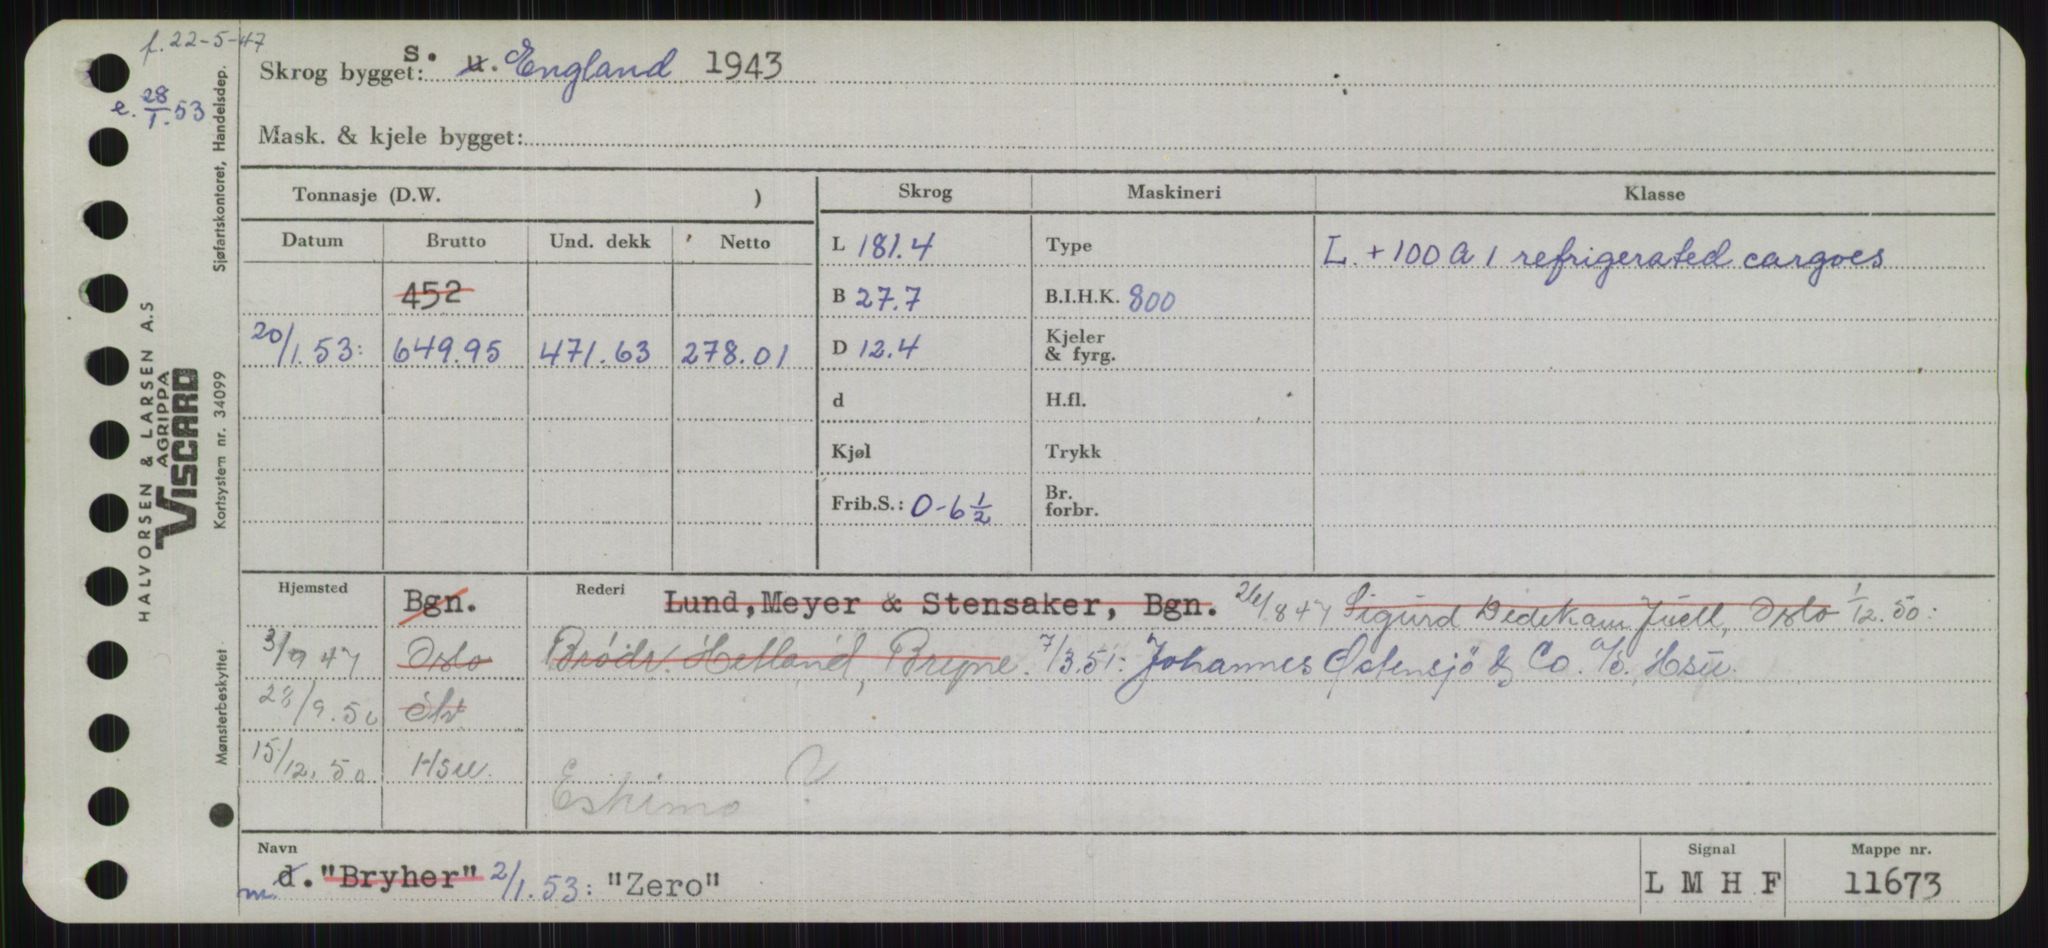 f. 22-5-47
e. 28/1.53
Skrog bygget: S. u. England 1943
Mask. & kjele bygget:
Tonnasje (D.W. )
Skrog
Maskineri
Klasse
Datum
Brutto
Und. dekk
Netto
L 181.4
Type
L. +100 A 1 refrigerated cargoes
452
B 27.7
B.I.H.K. 800
20/1.53: 649.95 471.63 278.01
D 12.4
Kjeler
& fyrg.
d
H.fl.
Kjøl
Trykk
Frib.S.: 0-6 1/2
Br.
forbr.
Hjemsted
Bgn.
Rederi
Lund, Meyer & Stensaker, Bgn. 26/8 47 Sigurd Didekam Juell, Oslo 1/12.50:
3/9 47 Oslo Brødr. Hetland, Bryne. 7/3.51: Johannes Østensjö & Co. a/s. Hsu.
28/9.50
15/12.50 Hsu.
Eskimo ?
Navn
m d. "Bryher" 2/1.53: "Zero"
Signal
L M H F
Mappe nr.
11673
HALVORSEN & LARSEN A.S
AGRIPPA
VISCARD
Sjøfartskontoret, Handelsdep.
Kortsystem nr. 34099
Mønsterbeskyttet